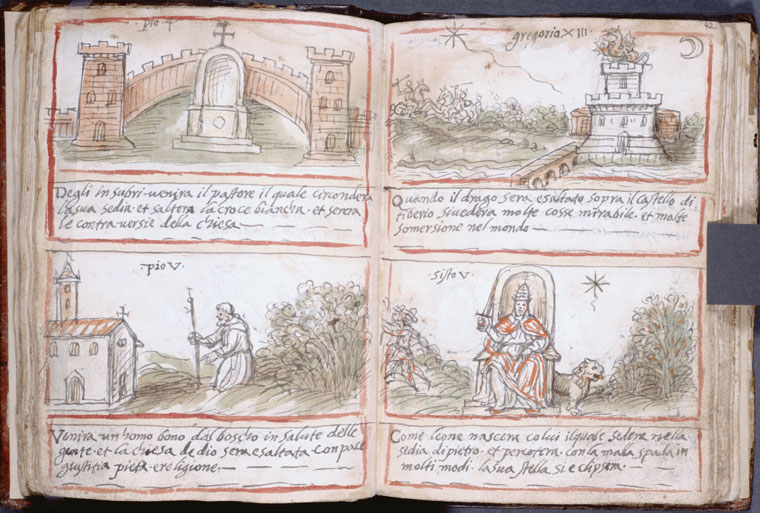 pio 4
Degli insubri venira il pastore il quale circondera
la sua sedia et saltera la croce biancha et serera
le contraversie della chiesa
pio V
Venira un homo bono dal boscho in salute delle
gente et la chiesa de dio sera esaltata con pace
giustitia pieta e religione
42
gregorio XIII
Quando il drago sera esaltado sopra il castello di
tiberio si vedera molte cosse mirabile et molte
somersione nel mondo
sisto V
Come leone nascera colui il quale sedera nella
sedia di pietro et percotera con la mala spada in
molti modi la sua stella si eclipsera